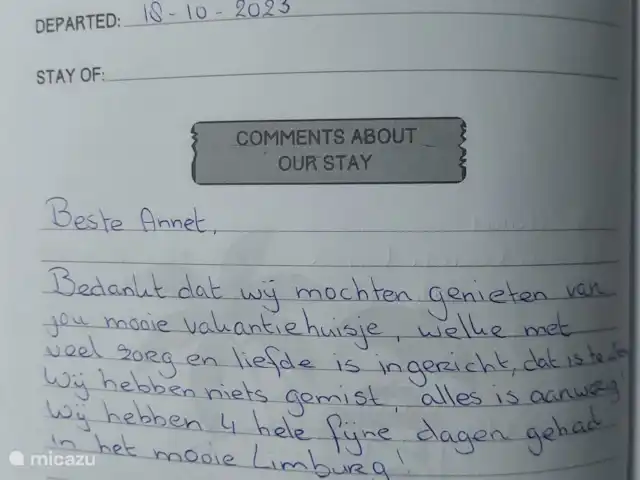 DEPARTED: 18-10-2023
STAY OF:
COMMENTS ABOUT
OUR STAY
Beste Annet,
Bedankt dat wij mochten genieten van
jou mooie vakantiehuisje, welke met
veel zorg en liefde is ingericht, dat is te
Wij hebben niets gemist, alles is aanwezig
Wij hebben 4 hele fijne dagen gehad
in het mooie Limburg!
micazu